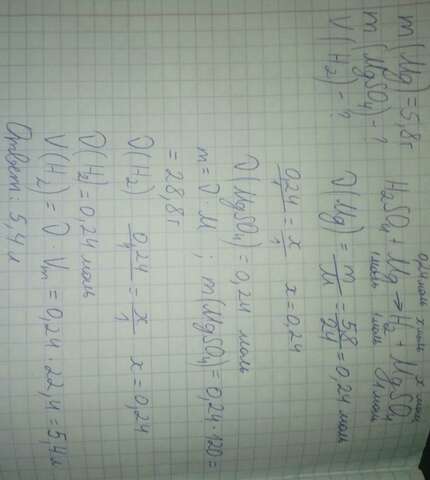 m(Mg)=5,8г
m(MgSO₄)-?
V(H₂)-?
0,24моль x моль x моль
H₂SO₄ + Mg → H₂ + MgSO₄
1моль 1моль 1моль
ν(Mg) = m/M = 5,8/24 = 0,24 моль
0,24/1 = x/1 x = 0,24
ν(MgSO₄) = 0,24 моль
m = ν · M ; m(MgSO₄) = 0,24 · 120 =
= 28,8г
ν(H₂) 0,24/1 = x/1 x = 0,24
ν(H₂) = 0,24 моль
V(H₂) = ν · Vm = 0,24 · 22,4 = 5,4 л
Ответ: 5,4 л